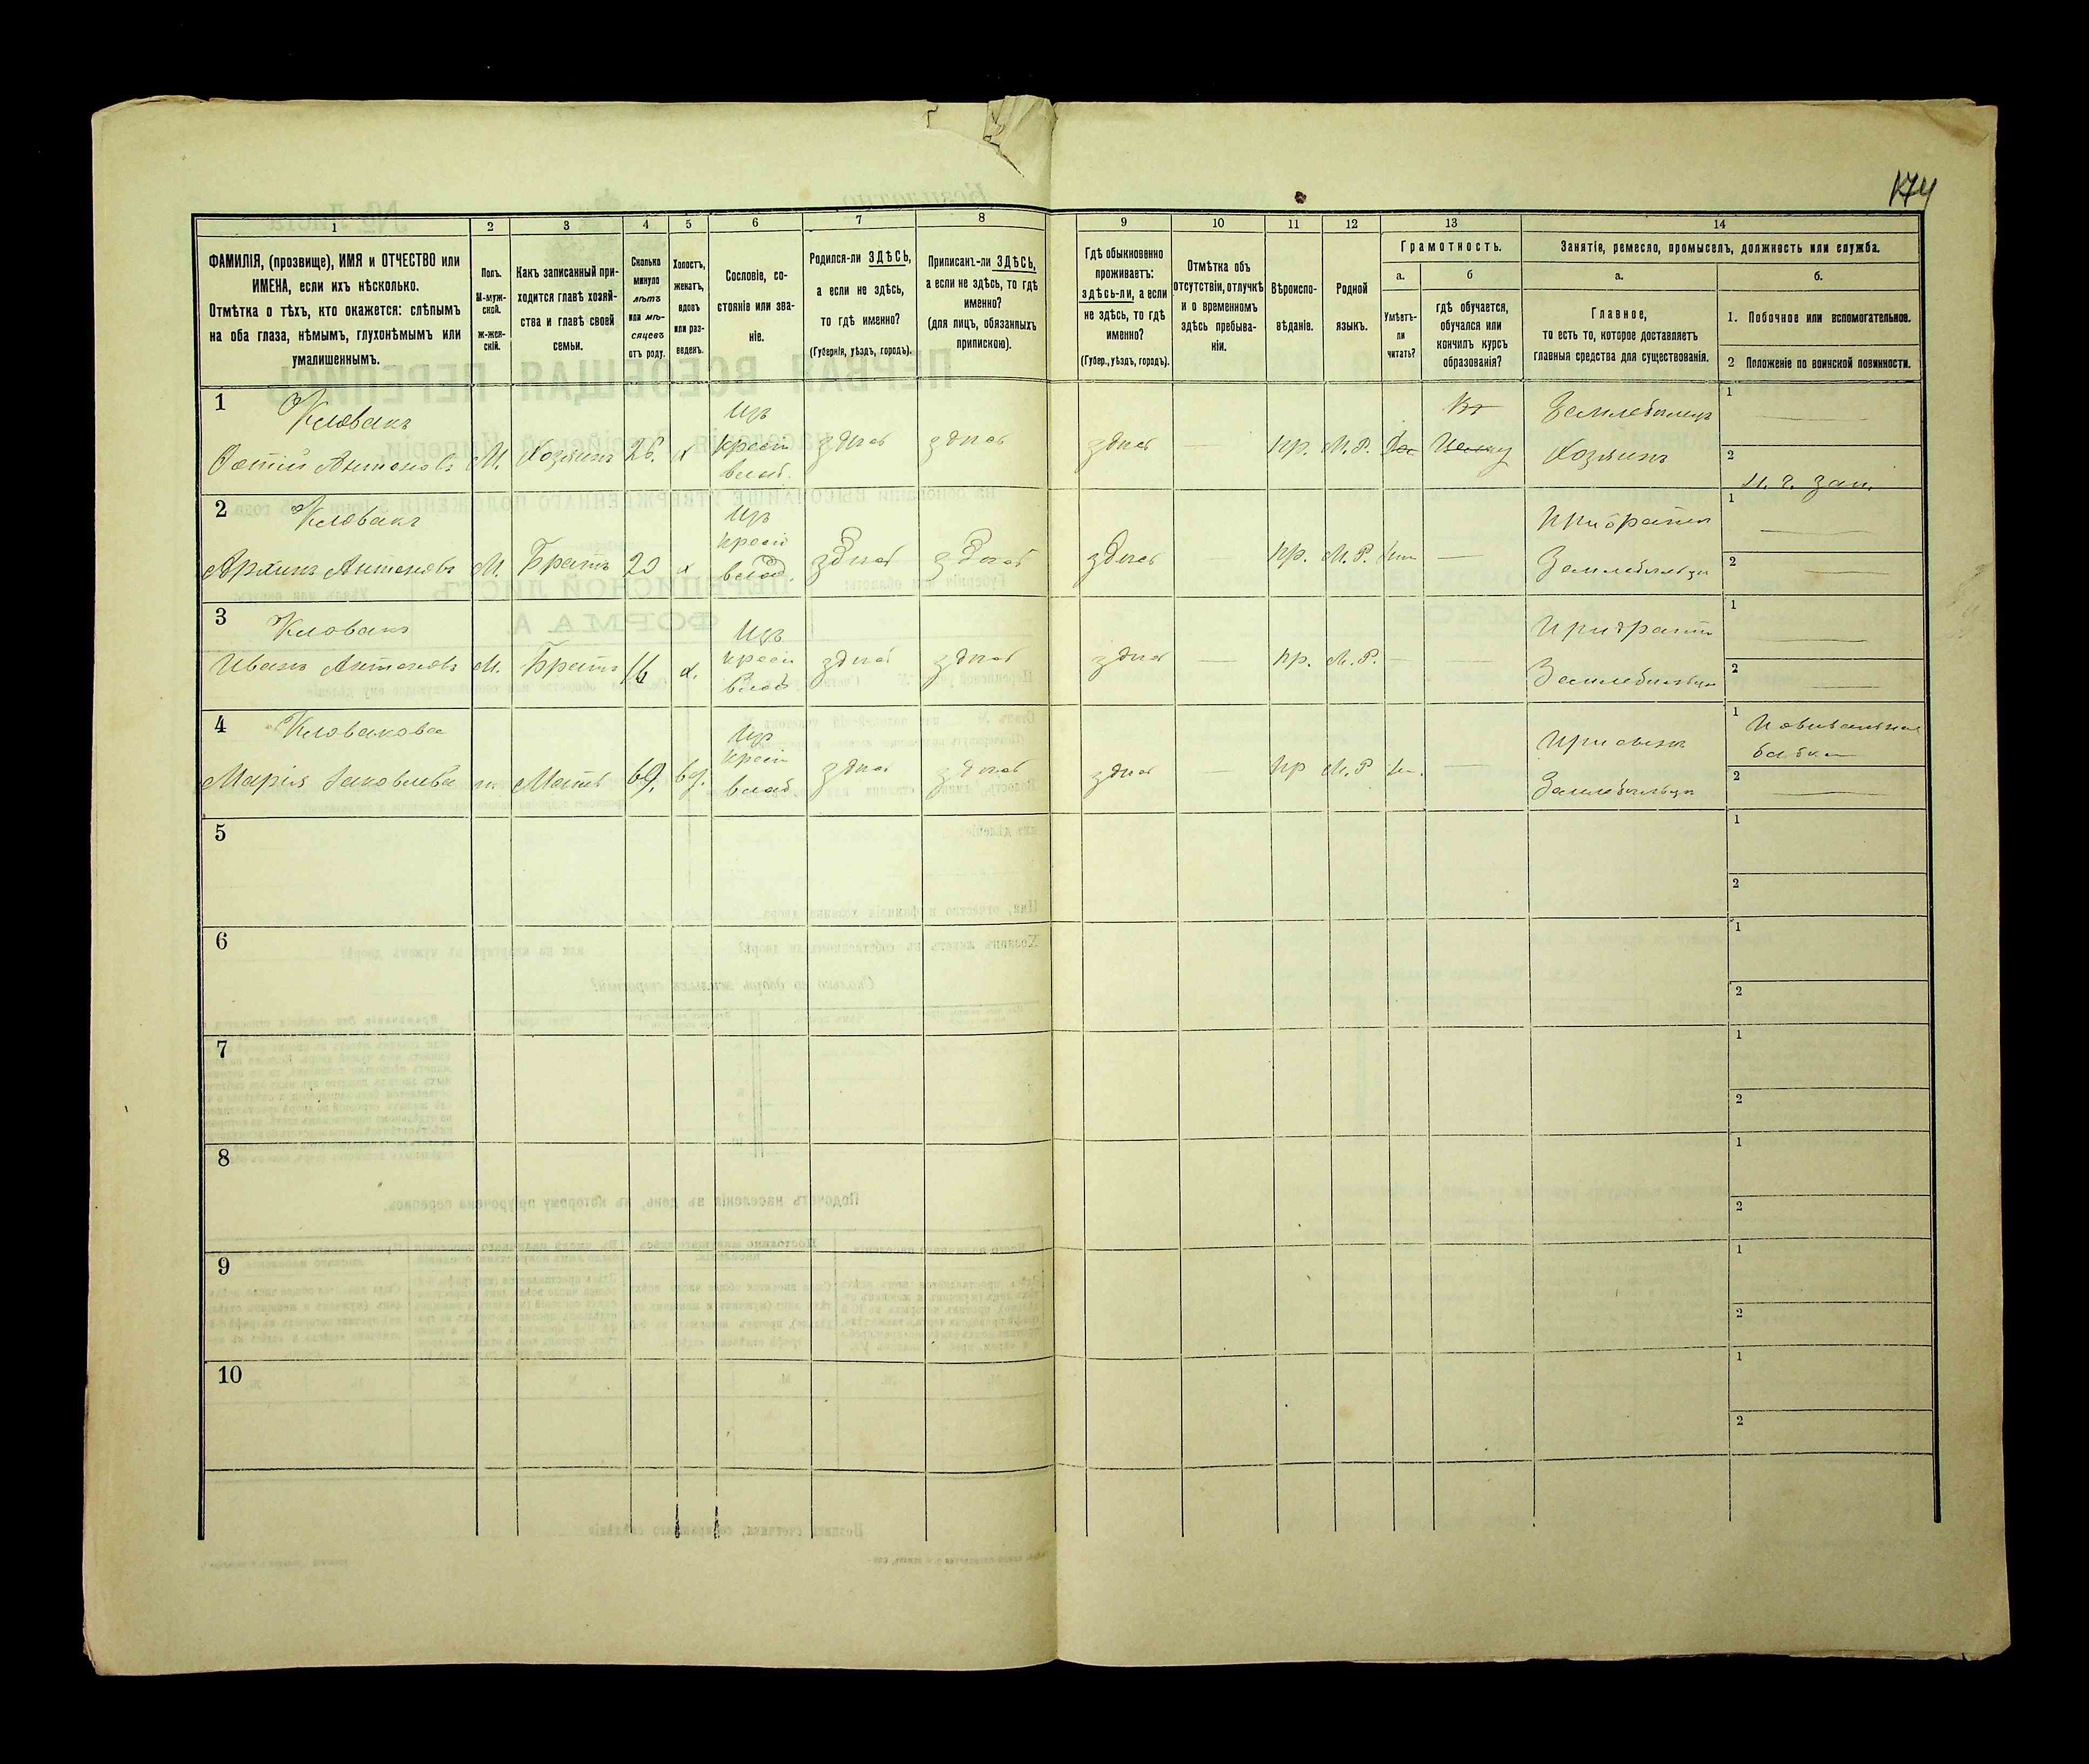 174
1 2 3 4 5 6 7 8 9 10 11 12 13 14
ФАМИЛІЯ, (прозвище), ИМЯ и ОТЧЕСТВО или
ИМЕНА, если ихъ нѣсколько.
Отмѣтка о тѣхъ, кто окажется: слѣпымъ
на оба глаза, нѣмымъ, глухонѣмымъ или
умалишеннымъ.
Полъ.
М-муж-
ской.
Ж-жен-
скій.
Какъ записанный при-
ходится главѣ хозяй-
ства и главѣ своей
семьи.
Сколько
минуло
лѣтъ
или мѣ-
сяцевъ
отъ роду.
Холостъ,
женатъ,
вдовъ
или раз-
веденъ.
Сословіе, со-
стояніе или зва-
ніе.
Родился-ли ЗДѢСЬ,
а если не здѣсь,
то гдѣ именно?
(Губернія, уѣздъ, городъ).
Приписанъ-ли ЗДѢСЬ,
а если не здѣсь, то гдѣ
именно?
(для лицъ, обязанныхъ
припискою).
Гдѣ обыкновенно
проживаетъ:
здѣсь-ли, а если
не здѣсь, то гдѣ
именно?
(Губер., уѣздъ, городъ).
Отмѣтка объ
отсутствіи, отлучкѣ
и о временномъ
здѣсь пребыва-
ніи.
Вѣроиспо-
вѣданіе.
Родной
языкъ.
Грамотность.
а.
Умѣетъ-
ли
читать?
б
гдѣ обучается,
обучался или
кончилъ курсъ
образованія?
Занятіе, ремесло, промыселъ, должность или служба.
а.
Главное,
то есть то, которое доставляетъ
главныя средства для существованія.
б.
1. Побочное или вспомогательное.
2 Положеніе по воинской повинности.
1 Кловакъ Изъ Земледѣлецъ 1
Антоновъ М. Хозяинъ 26. х крест влад. здѣсь здѣсь здѣсь — пр. М.Р. Хозяинъ 2
2 Кловакъ Изъ При братѣ 1
Архипъ Антоновъ М. Братъ 20 х крест влад. здѣсь здѣсь здѣсь — пр. М.Р. — Земледѣлецъ 2
3 Кловакъ Изъ При братѣ 1
Иванъ Антоновъ М. Братъ 16 х. крест влад здѣсь здѣсь здѣсь — пр. М.Р. — — Земледѣлецъ 2
4 Кловакова Изъ При сынѣ 1 Повивальная
бабка
Марія Яковлева Мать здѣсь здѣсь здѣсь — пр М.Р — Земледѣлецъ 2
крест
влад
5 1
2
6 1
2
7 1
2
8 1
2
9 1
2
10 1
2